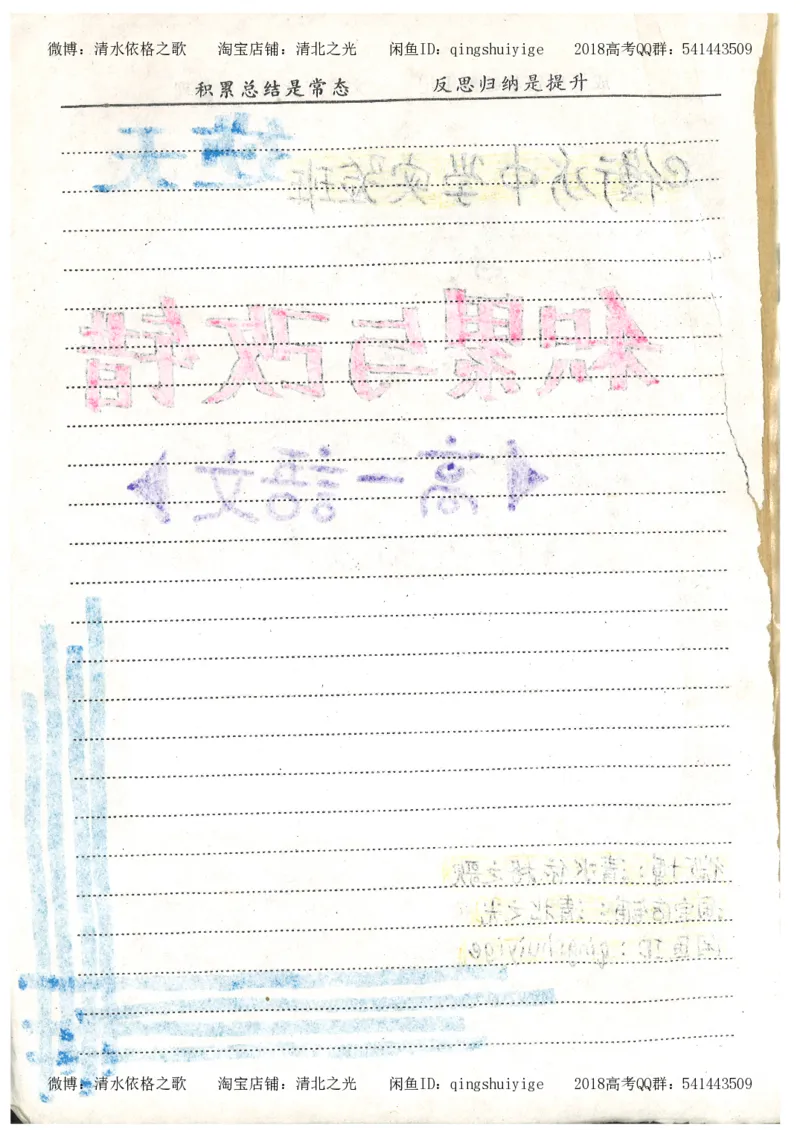 微博：清水依格之歌 淘宝店铺：清北之光 闲鱼ID：qingshuiyige 2018高考QQ群：541443509
积累总结是常态 反思归纳是提升
@衡水中学实验班
积累与改错
高一語文
微博：清水依格之歌
淘宝店铺：清北之光
闲鱼ID：qingshuiyige
微博：清水依格之歌 淘宝店铺：清北之光 闲鱼ID：qingshuiyige 2018高考QQ群：541443509